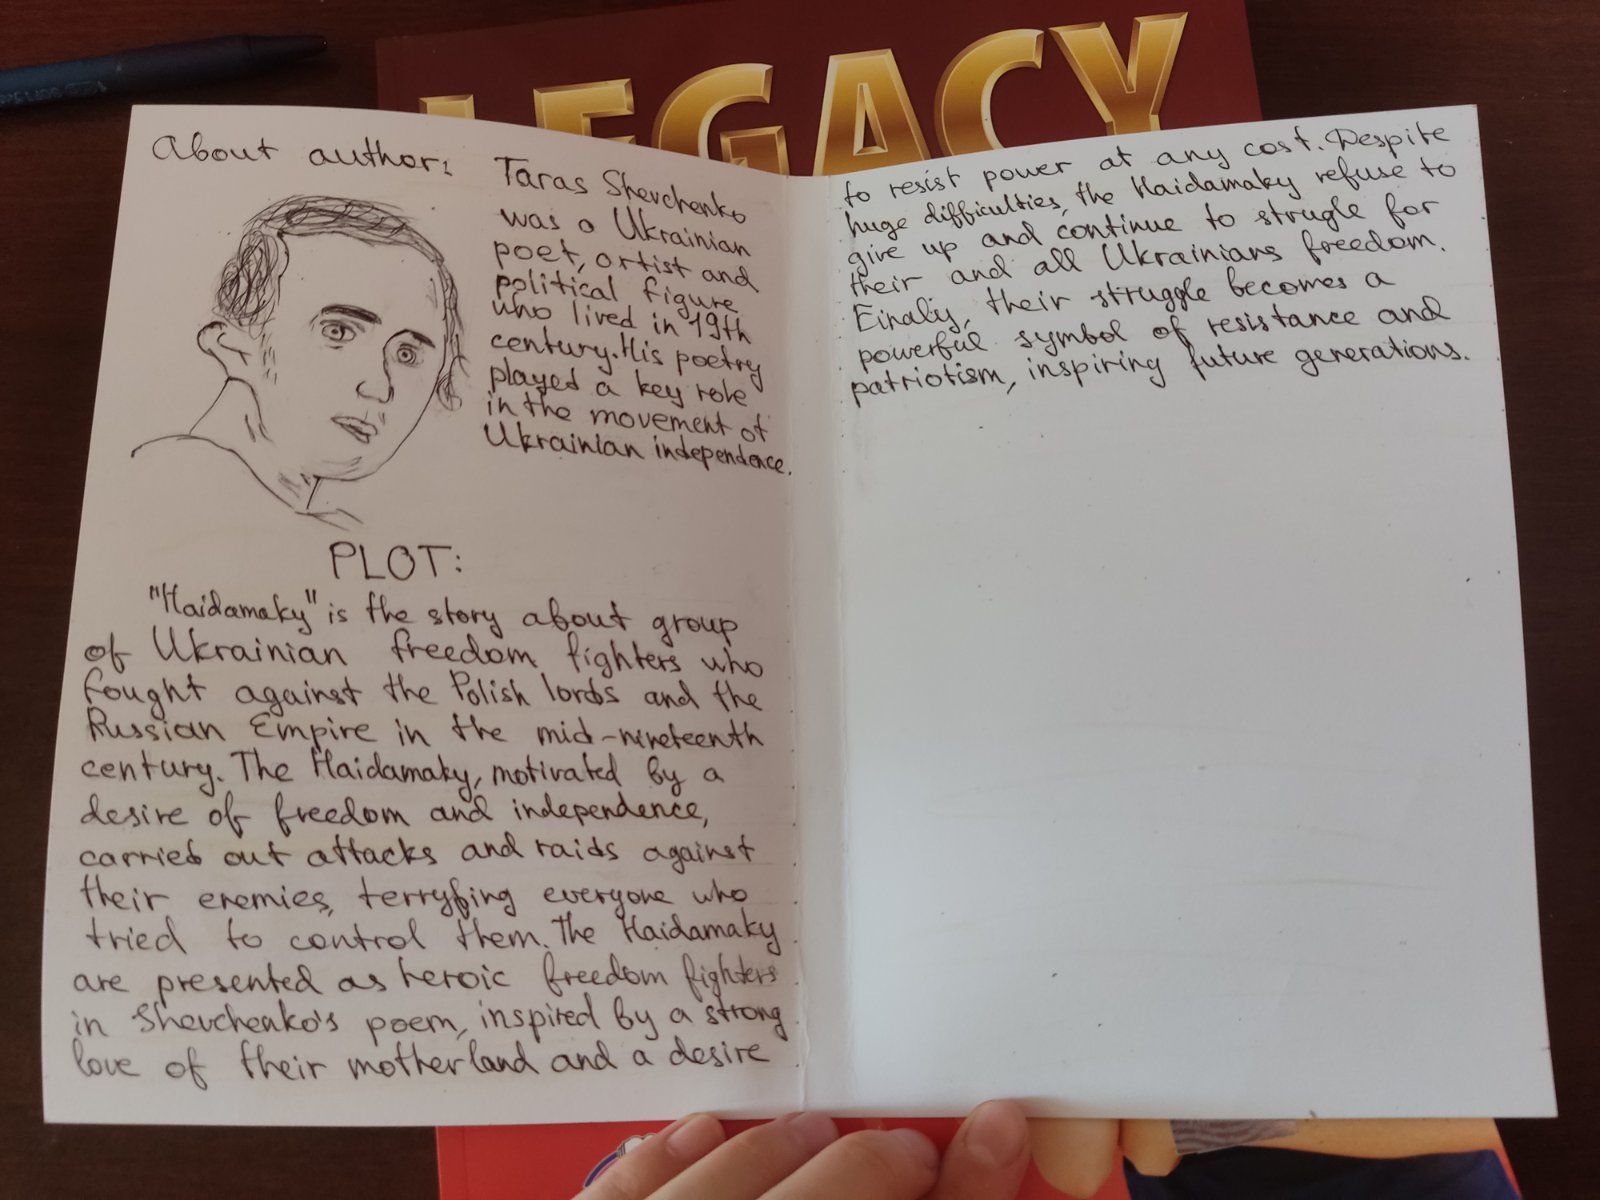 LEGACY
About author:
Taras Shevchenko
was a Ukrainian
poet, artist and
political figure
who lived in 19th
century. His poetry
played a key role
in the movement of
Ukrainian independence.
PLOT:
"Haidamaky" is the story about group
of Ukrainian freedom fighters who
fought against the Polish lords and the
Russian Empire in the mid-nineteenth
century. The Haidamaky, motivated by a
desire of freedom and independence,
carried out attacks and raids against
their enemies, terryfing everyone who
tried to control them. The Haidamaky
are presented as heroic freedom fighters
in Shevchenko's poem, inspired by a strong
love of their motherland and a desire
to resist power at any cost. Despite
huge difficulties, the Haidamaky refuse to
give up and continue to strugle for
their and all Ukrainians freedom.
Finaly, their struggle becomes a
powerful symbol of resistance and
patriotism, inspiring future generations.